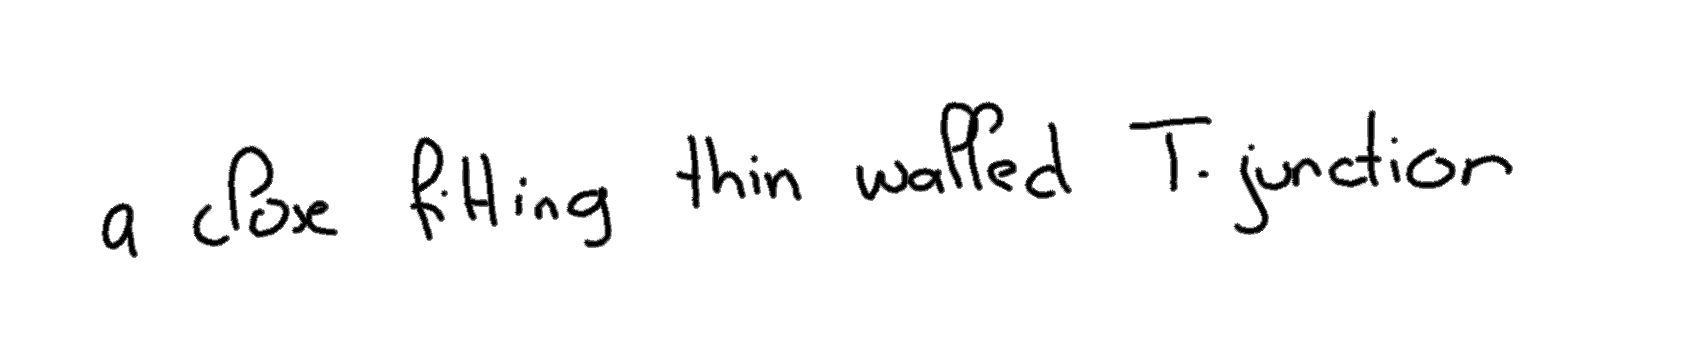 a close fitting thin walled T-junction